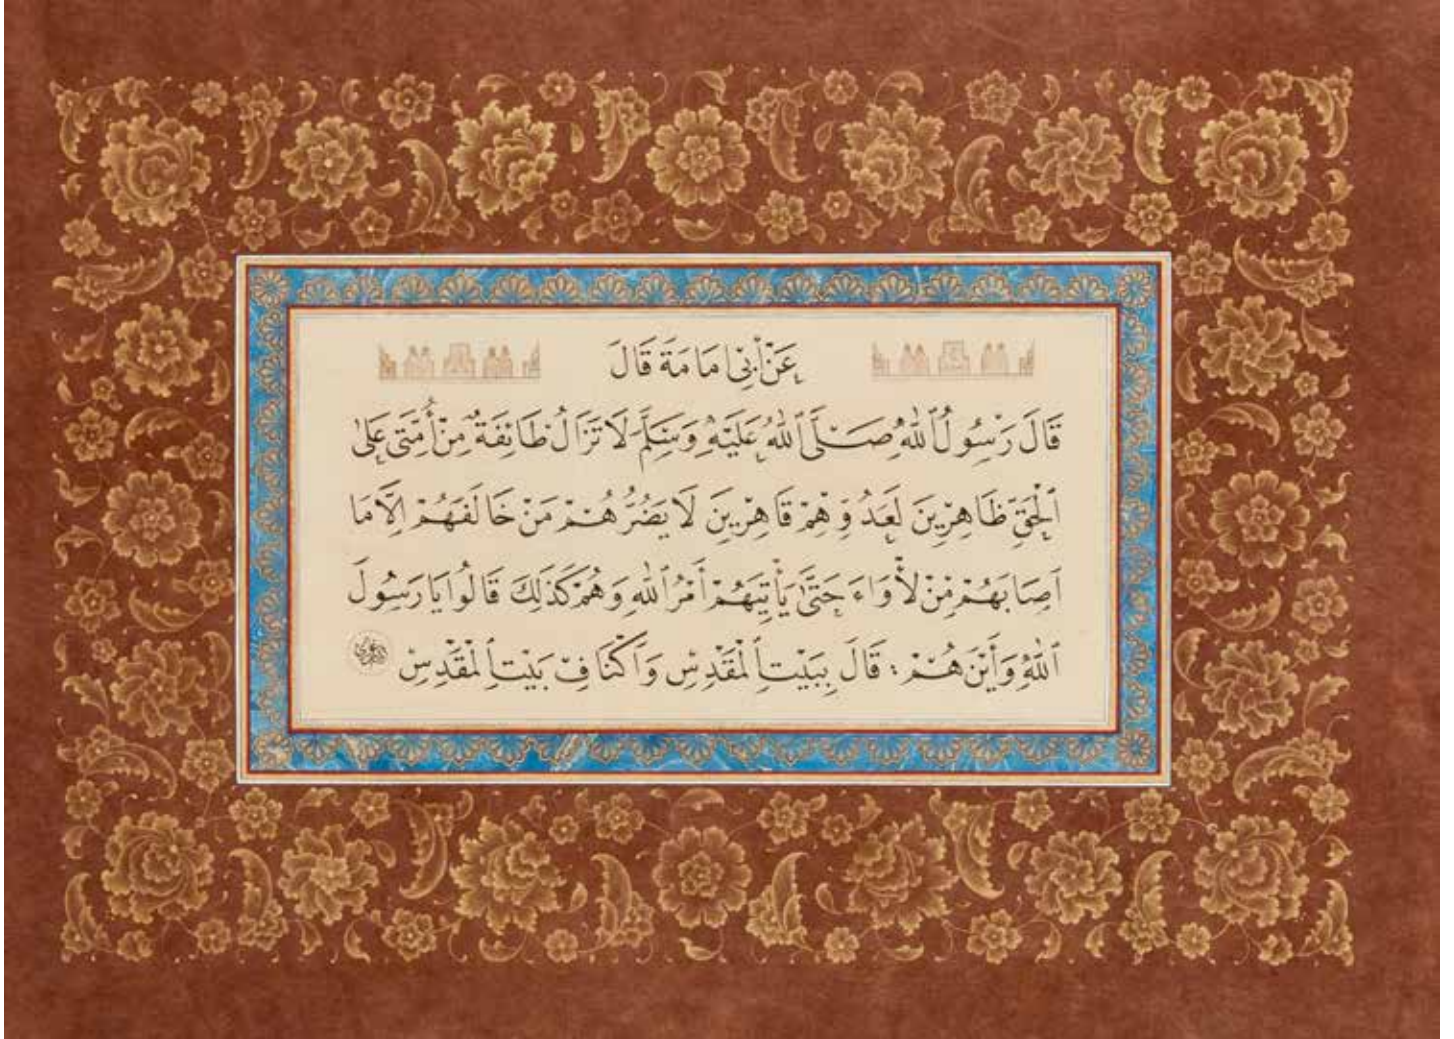 عَنْ أَبِى مَامَةَ قَالَ
قَالَ رَسُولُ ٱللّٰهِ صَلَّى ٱللّٰهُ عَلَيْهِ وَسَلَّمَ لَا تَزَالُ طَائِفَةٌ مِنْ أُمَّتِى عَلَى
ٱلْحَقِّ ظَاهِرِينَ لَعَدُوِّهِمْ قَاهِرِينَ لَا يَضُرُّهُمْ مَنْ خَالَفَهُمْ اِلَّا مَا
اَصَابَهُمْ مِنْ لَأْوَاءَ حَتَّى يَأْتِيَهُمْ أَمْرُ ٱللّٰهِ وَهُمْ كَذَلِكَ قَالُوا يَا رَسُولَ
ٱللّٰهِ وَأَيْنَ هُمْ : قَالَ بِبَيْتِ ٱلْمَقْدِسِ وَاَكْنَافِ بَيْتِ ٱلْمَقْدِسِ